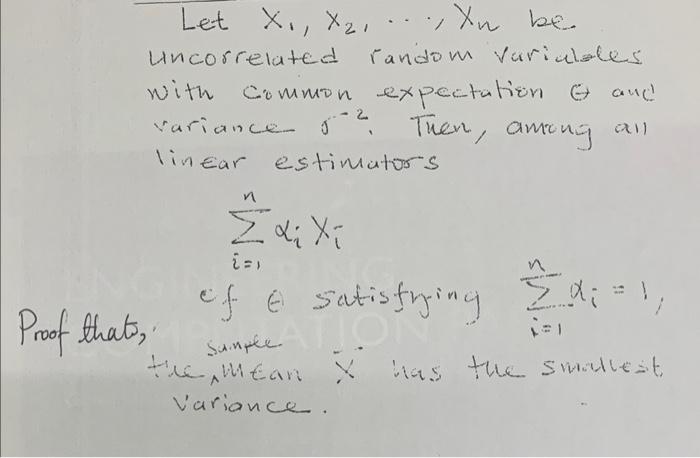 Let X₁, X₂, ..., Xn be
uncorrelated random variables
with common expectation θ and
variance σ². Then, among all
linear estimators
n
Σ αᵢ Xᵢ
i=1
of θ satisfying n Σ i=1 αᵢ = 1,
Proof thats,
the sample mean X̄ has the smallest
variance.